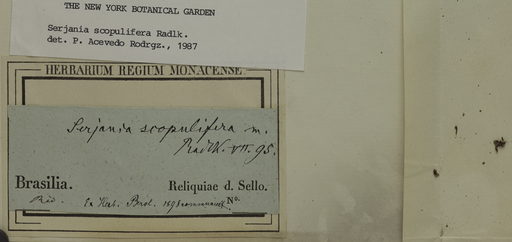 THE NEW YORK BOTANICAL GARDEN
Serjania scopulifera Radlk.
det. P. Acevedo Rodrgz., 1987
HERBARIUM REGIUM MONACENSE
Serjania scopulifera m.
Radlk. VII. 95.
Brasilia. Reliquiae d. Sello.
Ex Herb. Berol. 1895 Nº.